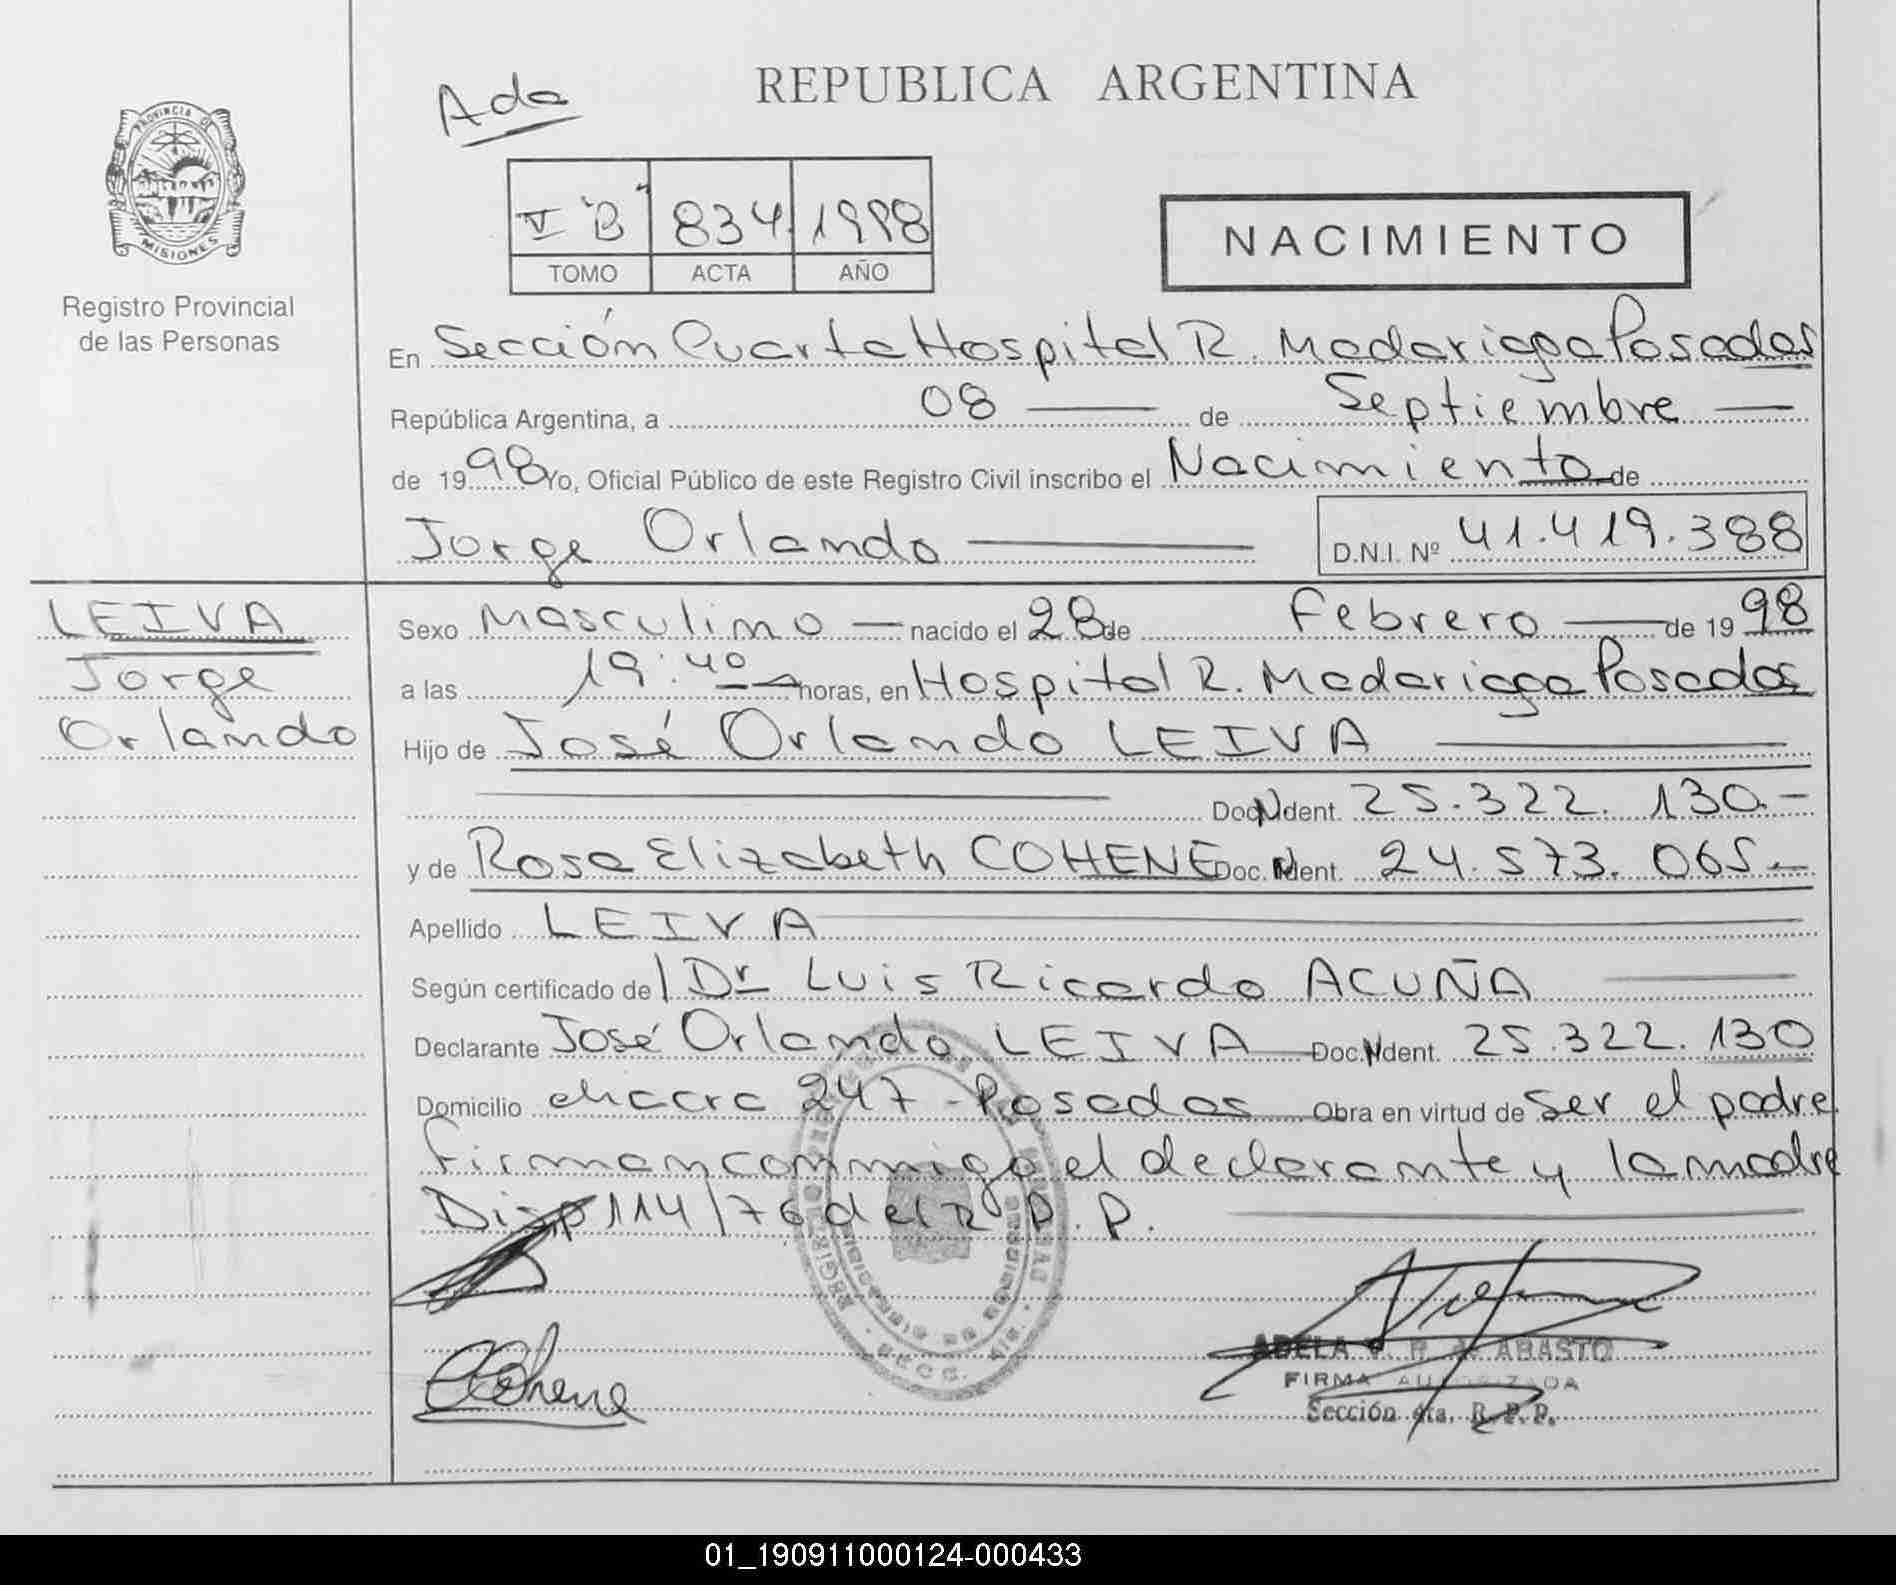 REPUBLICA ARGENTINA
Ada
PROVINCIA DE
MISIONES
Registro Provincial
de las Personas
V "B" 834 1998
TOMO ACTA AÑO
NACIMIENTO
En Sección Cuarta Hospital R. Madariaga Posadas
República Argentina, a 08 de Septiembre
de 1998 Yo, Oficial Público de este Registro Civil inscribo el Nacimiento de
Jorge Orlando D.N.I. Nº 41.419.388
LEIVA
Jorge
Orlando
Sexo Masculino nacido el 28 de Febrero de 1998
a las 19:40 horas, en Hospital R. Madariaga Posadas
Hijo de José Orlando LEIVA
Doc. Ident. 25.322.130.-
y de Rosa Elizabeth COHENE Doc. Ident. 24.573.065.-
Apellido LEIVA
Según certificado de l Dr Luis Ricardo ACUÑA
Declarante José Orlando LEIVA Doc. Ident. 25.322.130
Domicilio chacra 247 - Posadas Obra en virtud de ser el padre
Firman conmigo el declarante y la madre
Disp 114/76 del R.P.P.
CCohene
ADELA V. R. ABASTO
FIRMA AUTORIZADA
Sección 4ta. R.P.P.
01_190911000124-000433